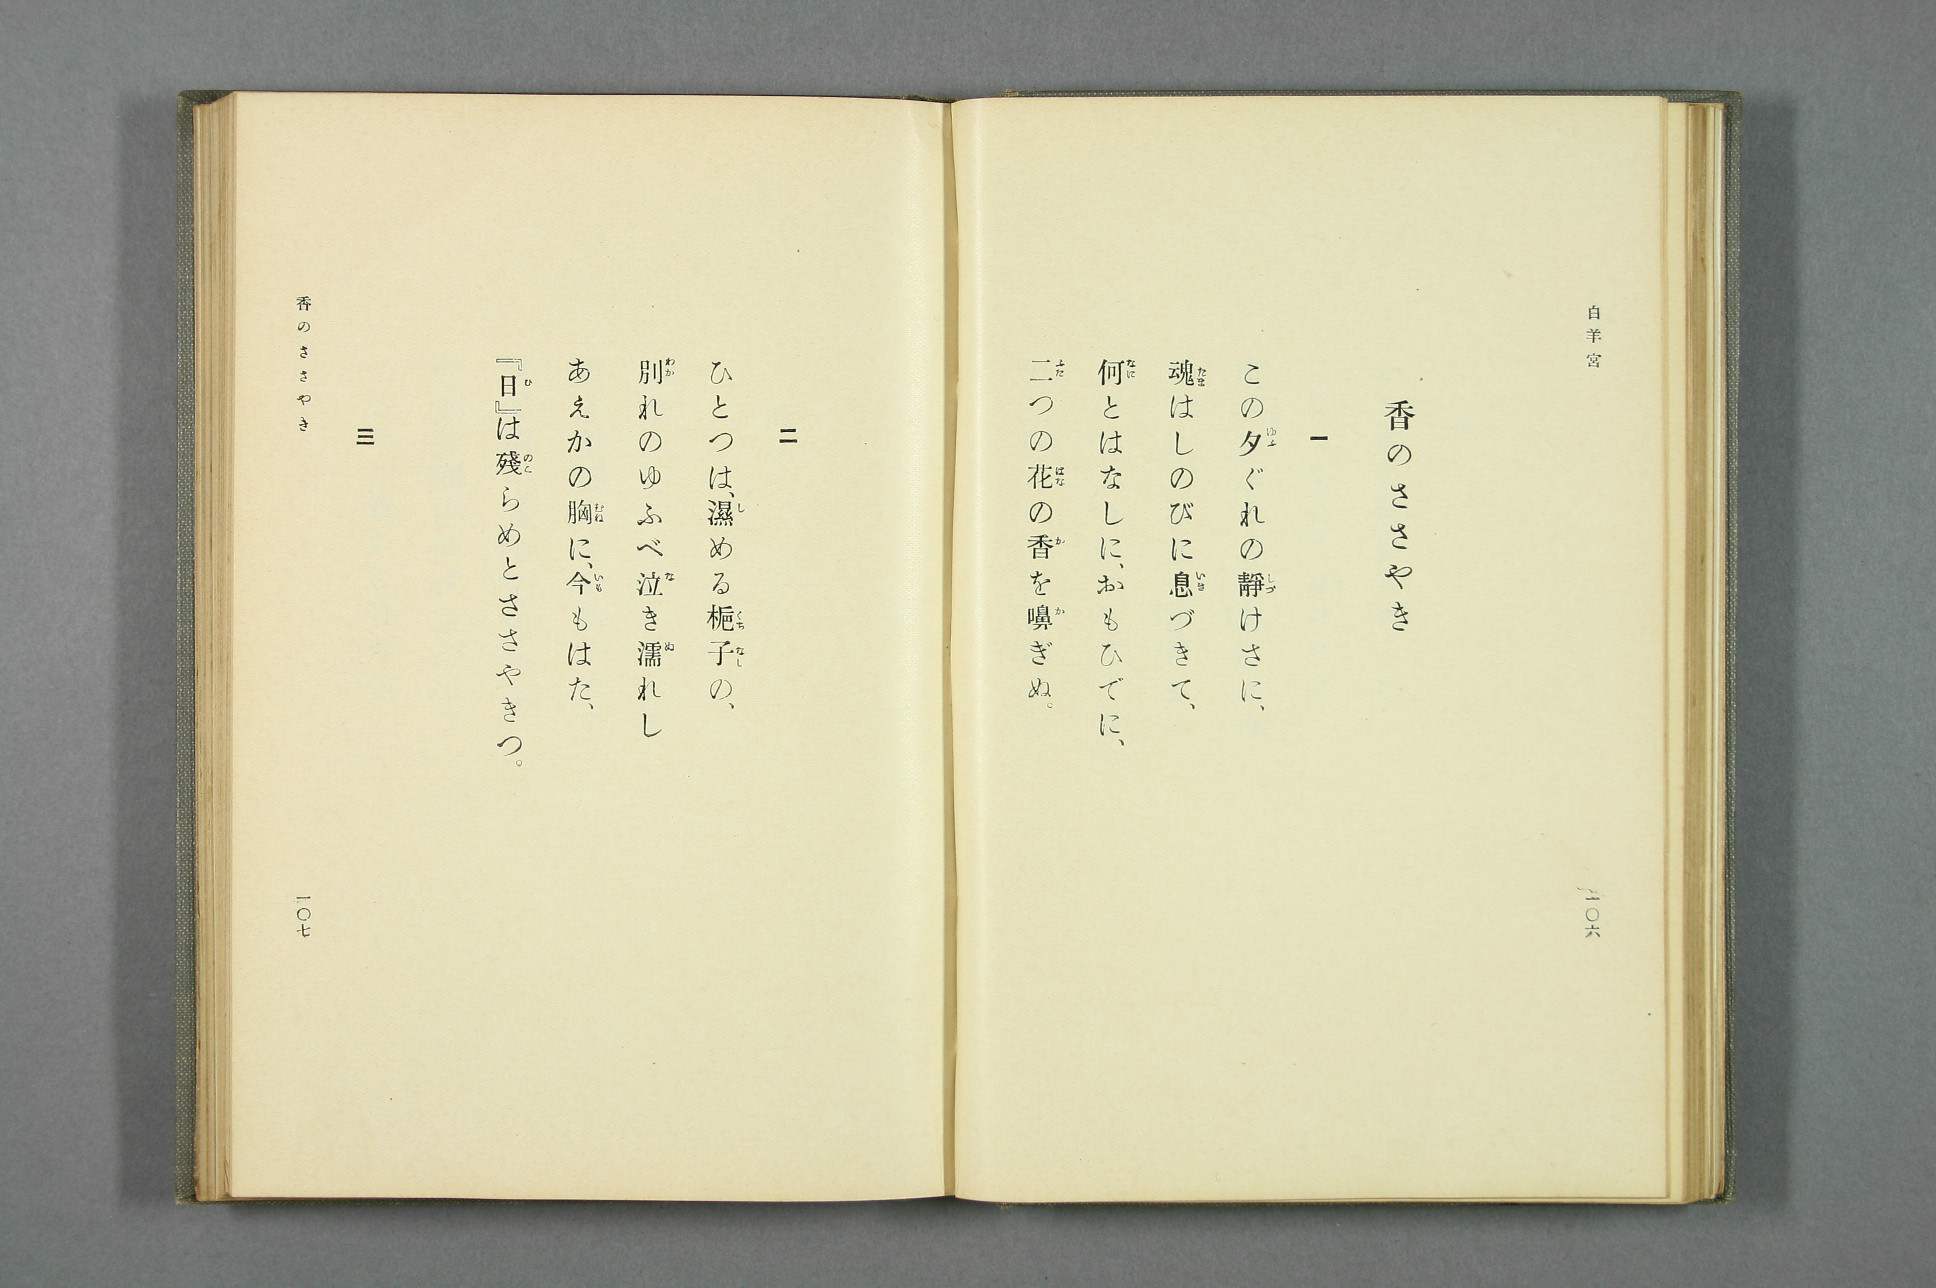 白羊宮
香のささやき
一
この夕ぐれの靜けさに、
魂はしのびに息づきて、
何とはなしに、おもひでに、
二つの花の香を嗅ぎぬ。
一〇六
二
ひとつは、濕める梔子の、
別れのゆふべ泣き濡れし
あえかの胸に、今もはた、
『日』は殘らめとささやきつ。
三
香のささやき
一〇七